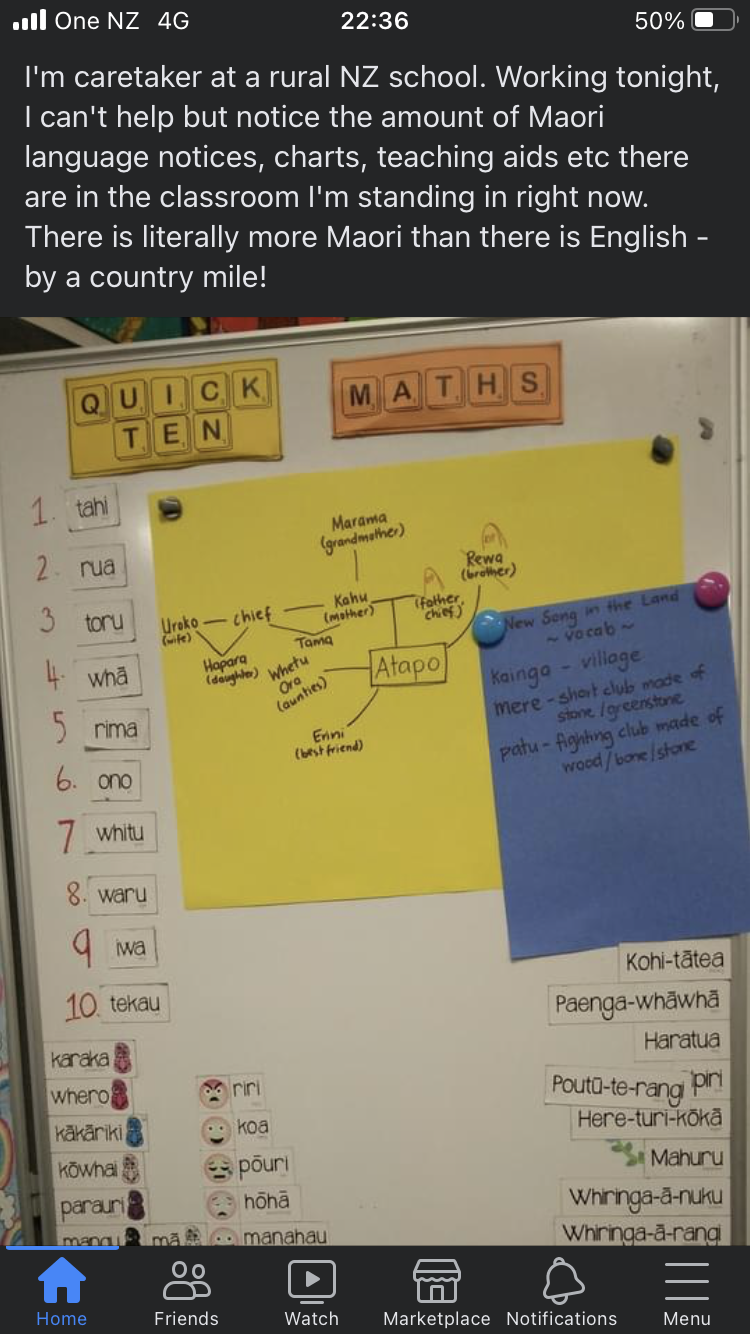 One NZ 4G 22:36 50%
I'm caretaker at a rural NZ school. Working tonight,
I can't help but notice the amount of Maori
language notices, charts, teaching aids etc there
are in the classroom I'm standing in right now.
There is literally more Maori than there is English -
by a country mile!
QUICK
TEN
MATHS
1. tahi
2. rua
3 toru
4. whā
5 rima
6. ono
7 whitu
8. waru
9 iwa
10. tekau
Marama
(grandmother)
Rewa
(brother)
Uroko
(wife)
chief
Kahu
(mother)
(father,
chief)
Hapara
(daughter)
Tama
Whetu
Ora
(aunties)
Atapo
Erini
(best friend)
New Song in the Land
~ vocab ~
Kainga - village
mere - short club made of
stone/greenstone
patu - fighting club made of
wood/bone/stone
karaka
whero
kākāriki
kōwhai
parauri
mangu
mā
riri
koa
pōuri
hōhā
manahau
Kohi-tātea
Paenga-whāwhā
Haratua
Poutū-te-rangi
piri
Here-turi-kōkā
Mahuru
Whiringa-ā-nuku
Whiringa-ā-rangi
Home Friends Watch Marketplace Notifications Menu